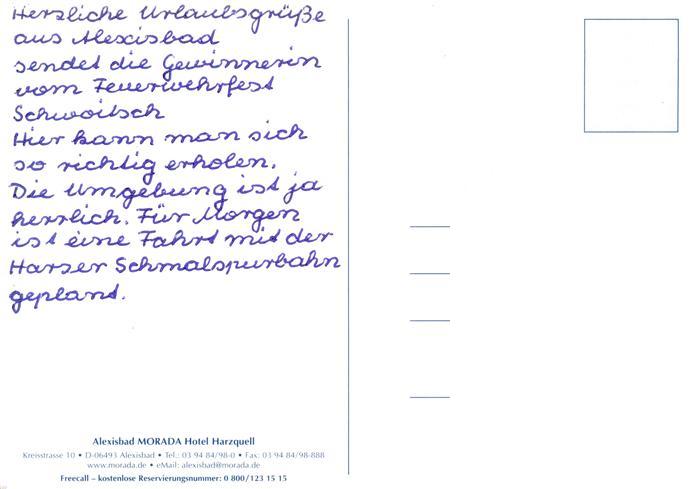 Herzliche Urlaubsgrüße
aus Alexisbad
sendet die Gewinnerin
vom Feuerwehrfest
Schwoitsch
Hier kann man sich
so richtig erholen.
Die Umgebung ist ja
herrlich. Für Morgen
ist eine Fahrt mit der
Harzer Schmalspurbahn
gepland.
Alexisbad MORADA Hotel Harzquell
Kreisstrasse 10 • D-06493 Alexisbad • Tel.: 03 94 84/98-0 • Fax: 03 94 84/98-888
www.morada.de • eMail: alexisbad@morada.de
Freecall – kostenlose Reservierungsnummer: 0 800/123 15 15